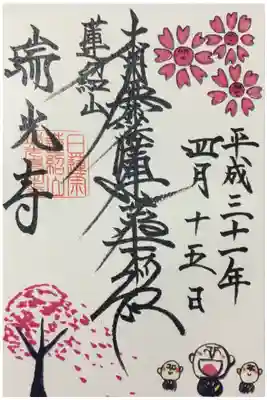 平成三十一年
四月十五日
南無妙法蓮華経
蓮紹山
瑞光寺